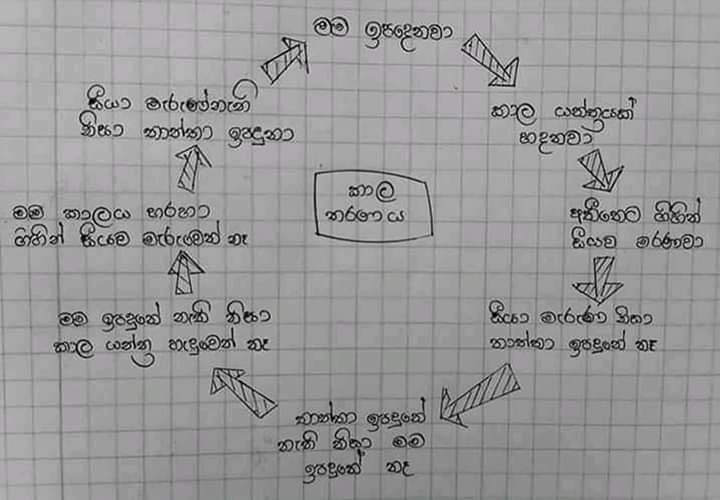 මම ඉපදෙනවා
කාල යන්ත්‍රයක්
හදනවා
අතීතෙට ගිහින්
සීයව මරණවා
සීයා මැරුණ නිසා
තාත්තා ඉපදුනේ නෑ
තාත්තා ඉපදුනේ
නැති නිසා මම
ඉපදුනේ නෑ
මම ඉපදුනේ නැති නිසා
කාල යන්ත්‍ර හැදුවෙත් නෑ
මම කාලය හරහා
ගිහින් සීයාව මැරුවෙත් නෑ
සීයා මැරුණේනැති
නිසා තාත්තා ඉපදුනා
කාල
තරණය